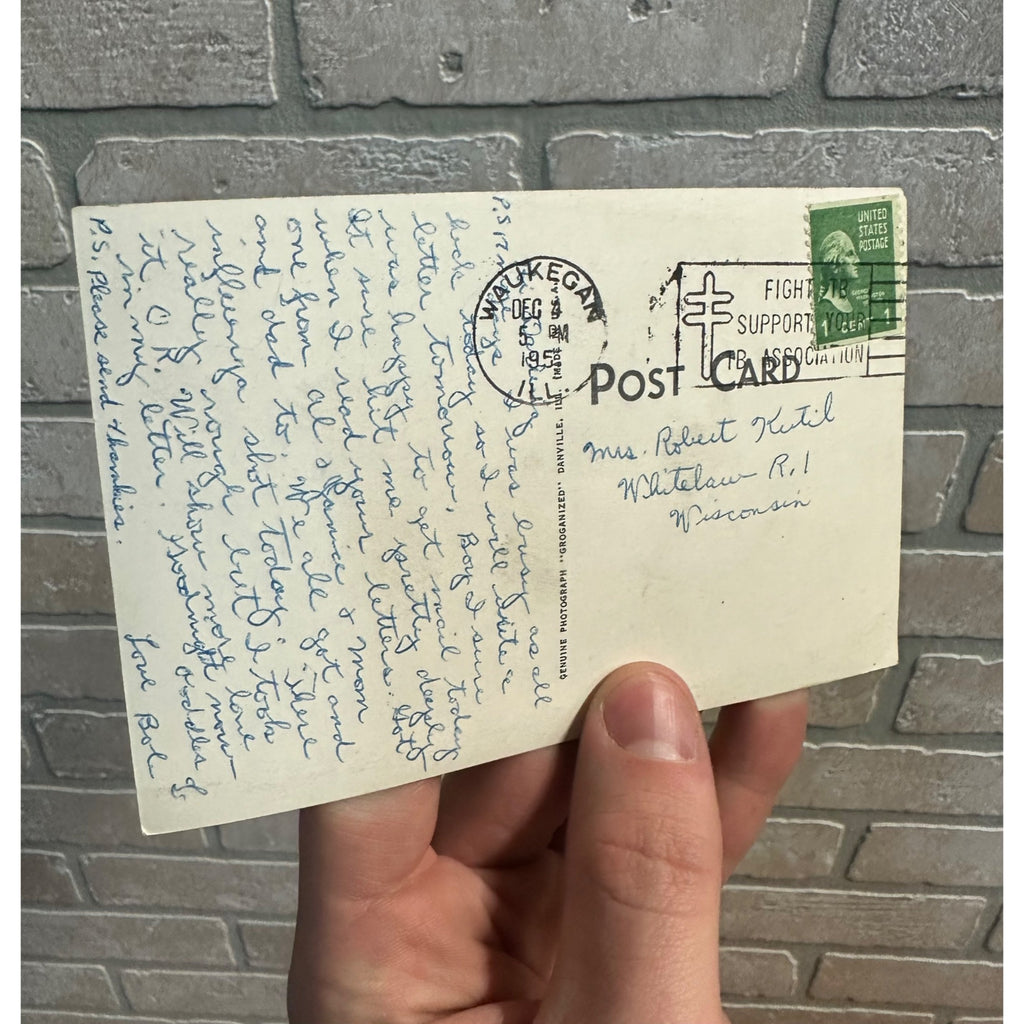 WAUKEGAN
DEC
5 PM
195
ILL.
FIGHT TB
SUPPORT YOUR
TB ASSOCIATION
UNITED
STATES
POSTAGE
1 CENT 1
POST CARD
Mrs. Robert Kutil
Whitelaw R.1
Wisconsin
GENUINE PHOTOGRAPH "GROGANIZED" DANVILLE, ILL.
P.S.
I was busy as all
heck today so I will write a
letter tomorrow. Boy I sure
was happy to get mail today
It sure hit me pretty deeply
when I read your letters. Got
one from Al & Janice & Mom
and dad to. We all got and
influenza shot today. There
really rough but I took
it O.K. Will show more love
in my letter. Goodnight now
Love Bob
P.S. Please send hankies.